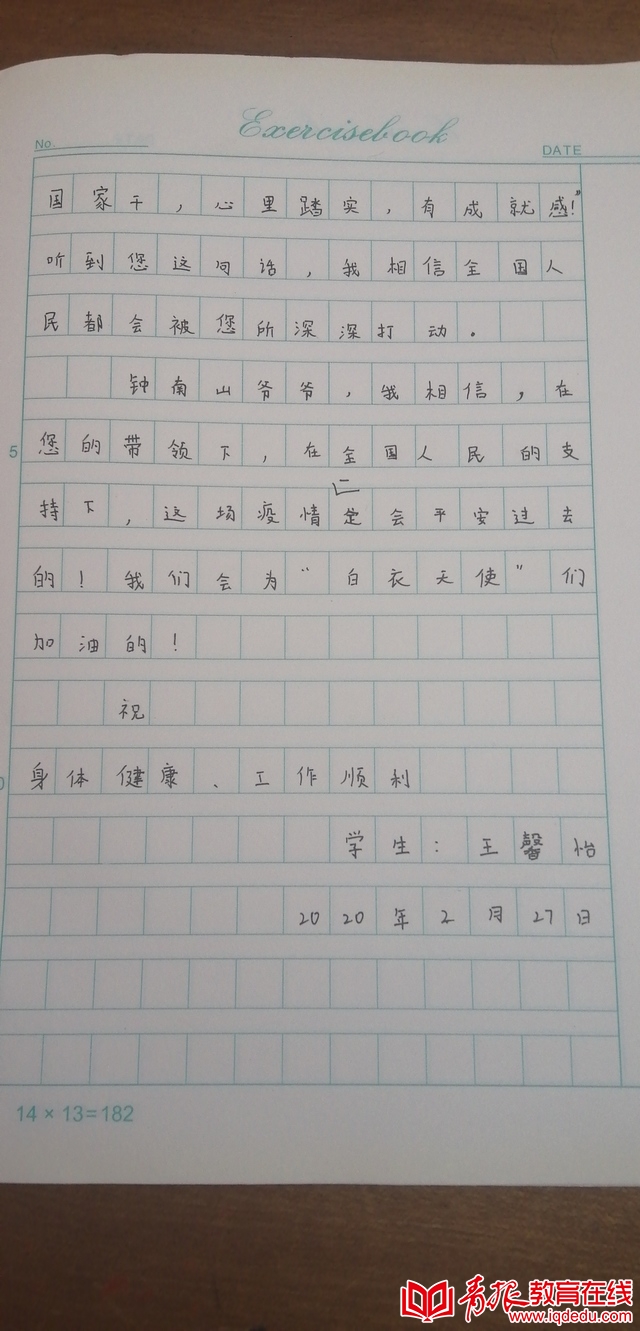 Exercisebook
No.
DATE
国家干,心里踏实,有成就感!”
听到您这句话,我相信全国人
民都会被您所深深打动。
钟南山爷爷,我相信,在
5
您的带领下,在全国人民的支
持下,这场疫情一定会平安过去
的!我们会为“白衣天使”们
加油的!
祝
身体健康、工作顺利
学生:王馨怡
2020年2月27日
14×13=182
青报教育在线
www.iqdedu.com